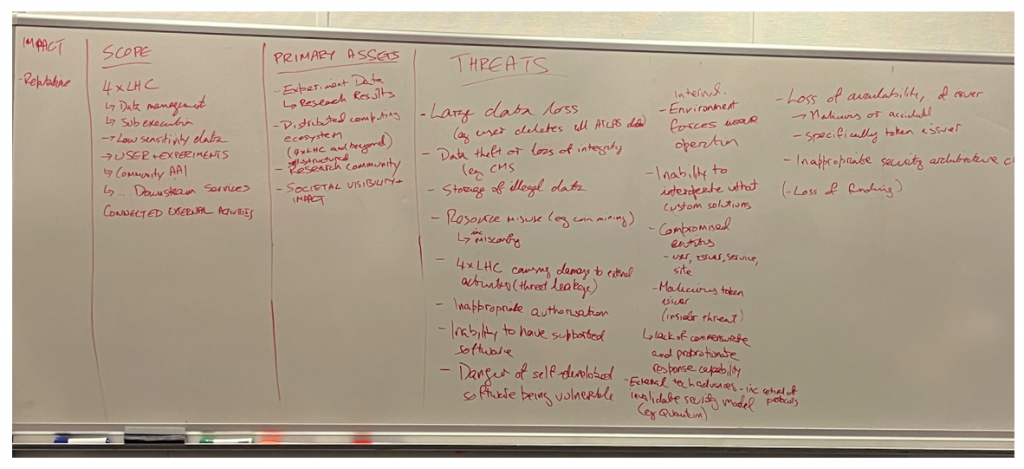 IMPACT
- Reputation
SCOPE
4xLHC
↳ Data management
↳ Job execution
↳ Low sensitivity data
→ USER + EXPERIMENTS
↳ Community AAI
↳ ... Downstream Services
CONNECTED EXTERNAL ACTIVITIES
PRIMARY ASSETS
- Experiment Data
↳ Research Results
- Distributed computing
ecosystem
(4xLHC and beyond)
- Research Community
- SOCIETAL VISIBILITY +
IMPACT
THREATS
- Large data loss
(eg user deletes all ATLAS data)
- Data theft or loss of integrity
(eg CMS
- Storage of illegal data
- Resource misuse (eg coin mining)
↳ inc misconfig
- 4xLHC causing damage to external
activities (threat leakage)
- Inappropriate authorisation
- Inability to have supported
software
- Danger of self-developed
software being vulnerable
Internal.
- Environment
forces
operation
- Inability to
interoperate without
custom solutions
- Compromised
entities
- user, issuer, service,
site
- Malicious token
issuer
(insider threat)
↳ lack of commensurate
and proportionate
response capability
- External tech advances - inc control of
protocols
invalidate security model
(eg Quantum)
- Loss of availability, of
- Malicious or accidental
- specifically token issuer
- Inappropriate security architecture
(- Loss of funding)